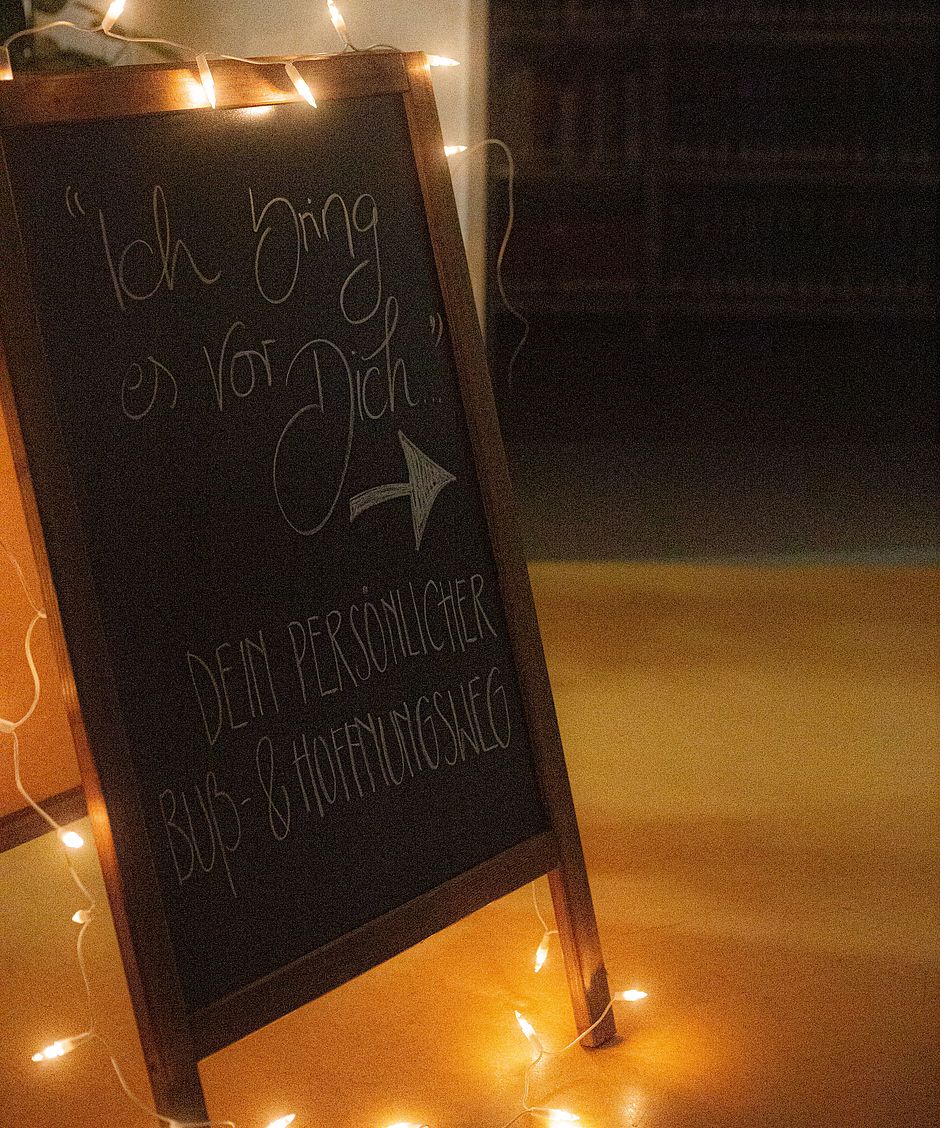 "Ich bring
es vor Dich..."
DEIN PERSÖNLICHER
BUß- & HOFFNUNGSWEG